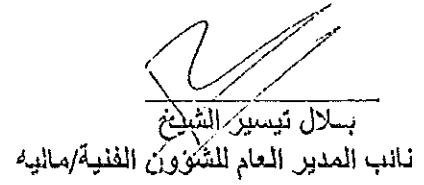 بلال تيسير الشيخ
نائب المدير العام للشؤوون الفنية/ماليه